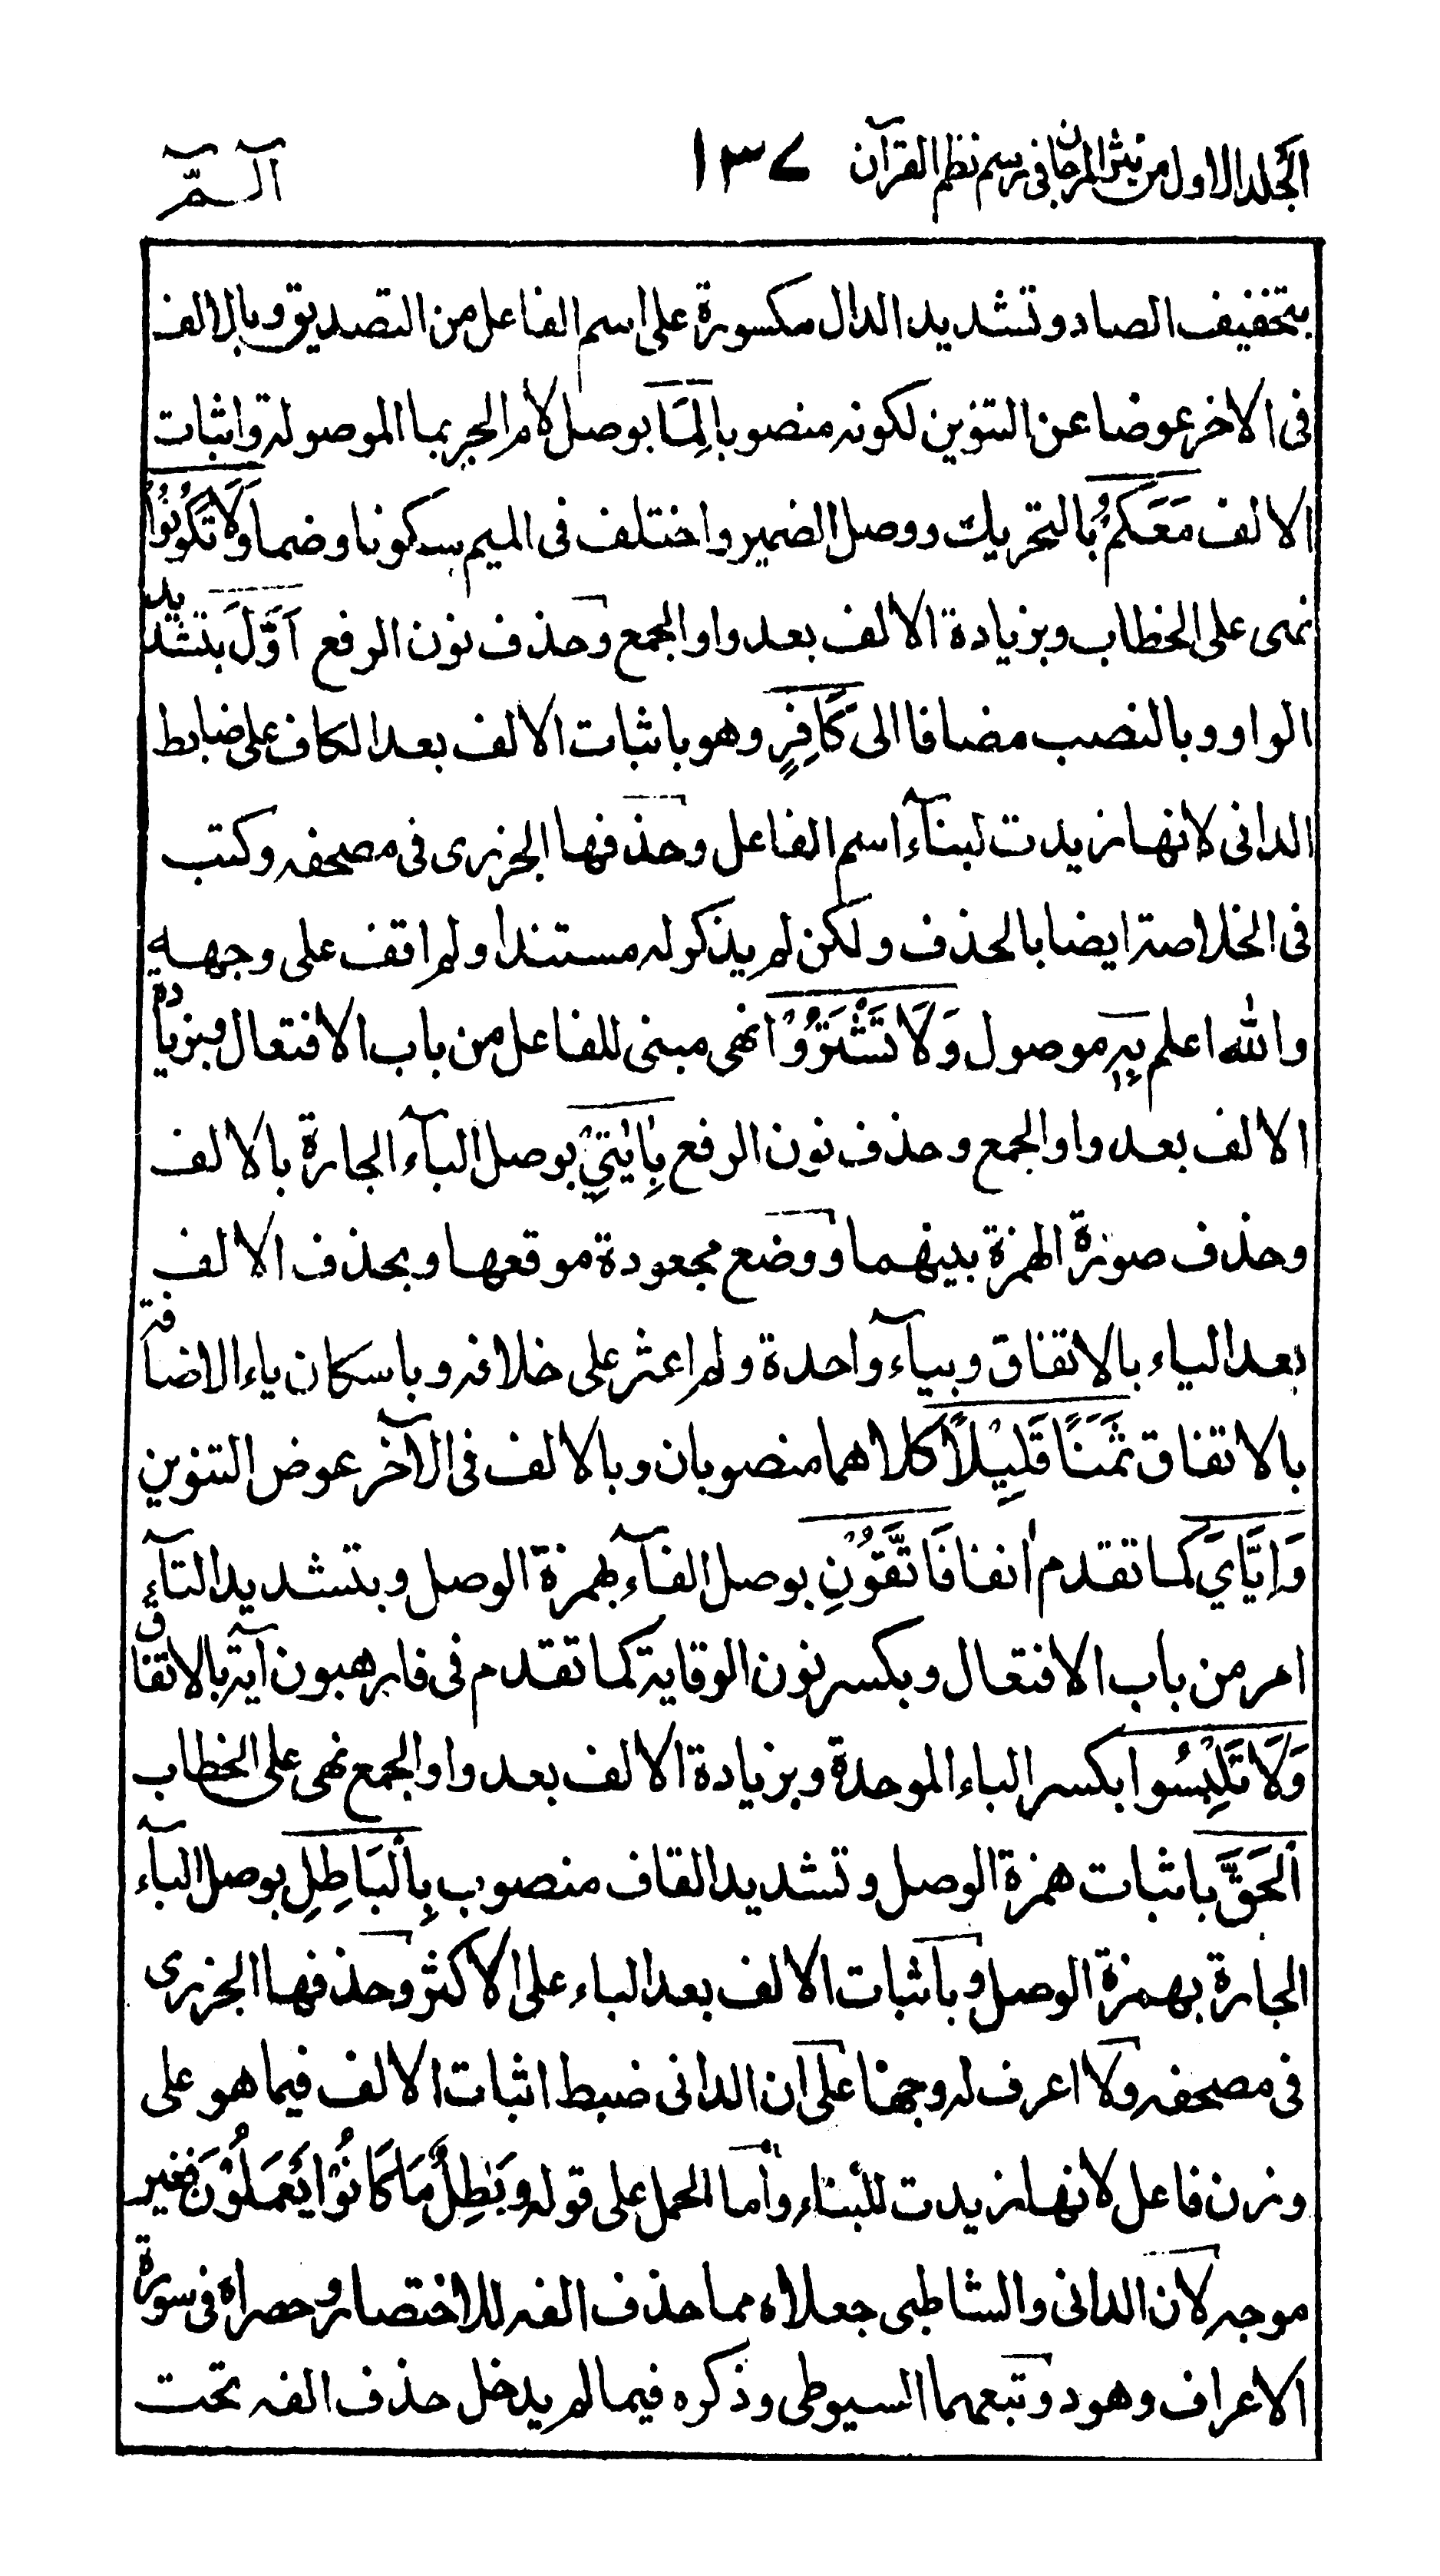 المجلد الاول من نثر المرجان فى رسم نظم القرآن ١٣٧ آلــمّٓ
بتخفيف الصاد وتشديد الدال مكسورة على اسم الفاعل من التصديق وبالالف
فى الاخر عوضا عن التنوين لكونه منصوبا لِمَا بوصل لام الجر بما الموصولة واثبات
الالف مَعَكُمْ بالتحريك ووصل الضمير واختلف فى الميم سكونا وضما وَلَا تَكُوْنُوْا
نهى على الخطاب وبزيادة الالف بعد واو الجمع وحذف نون الرفع اَوَّلَ بتشديد
الواو وبالنصب مضافا الى كَافِرٍ وهو باثبات الالف بعد الكاف على ضابط
الدانى لانها زيدت لبنآء اسم الفاعل وحذفها الجزرى فى مصحفه وكتب
فى الخلاصة ايضا بالحذف ولكن لم يذكر له مستندا ولم اقف على وجهه
والله اعلم بِهٖ موصول وَلَا تَشْتَرُوْا نهى مبنى للفاعل من باب الافتعال وبزيادة
الالف بعد واو الجمع وحذف نون الرفع بِاٰيٰتِيْ بوصل البآء الجارة بالالف
وحذف صورة الهمزة بينهما ووضع مجعودة موقعها وبحذف الالف
بعد الياء بالاتفاق وبيآء واحدة ولم اعثر على خلافه وباسكان ياء الاضافة
بالاتفاق ثَمَنًا قَلِيْلًا كلاهما منصوبان وبالالف فى الآخر عوض التنوين
وَاِيَّايَ كما تقدم اٰنفا فَاتَّقُوْنِ بوصل الفآء بهمزة الوصل وبتشديد التآء
امر من باب الافتعال وبكسر نون الوقاية كما تقدم فى فارهبون آية بالاتفاق
وَلَا تَلْبِسُوا بكسر الباء الموحدة وبزيادة الالف بعد واو الجمع نهى على الخطاب
الْحَقَّ باثبات همزة الوصل وتشديد القاف منصوب بِالْبَاطِلِ بوصل البآء
الجارة بهمزة الوصل وباثبات الالف بعد الباء على الاكثر وحذفها الجزرى
فى مصحفه ولا اعرف له وجها على ان الدانى ضبط اثبات الالف فيما هو على
وزن فاعل لانها زيدت للبناء واما الحمل على قوله وبٰطِلٌ مَا كَانُوْا يَعْمَلُوْنَ فغير
موجه لان الدانى والشاطبى جعلاه مما حذف الفه للاختصار وحصراه فى سورة
الاعراف وهود وتبعهما السيوطى وذكره فيما لم يدخل حذف الفه تحت